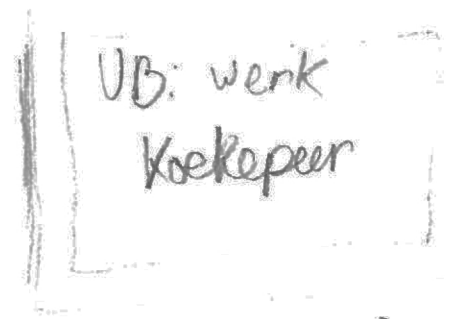 UB: werk
Koekepeer